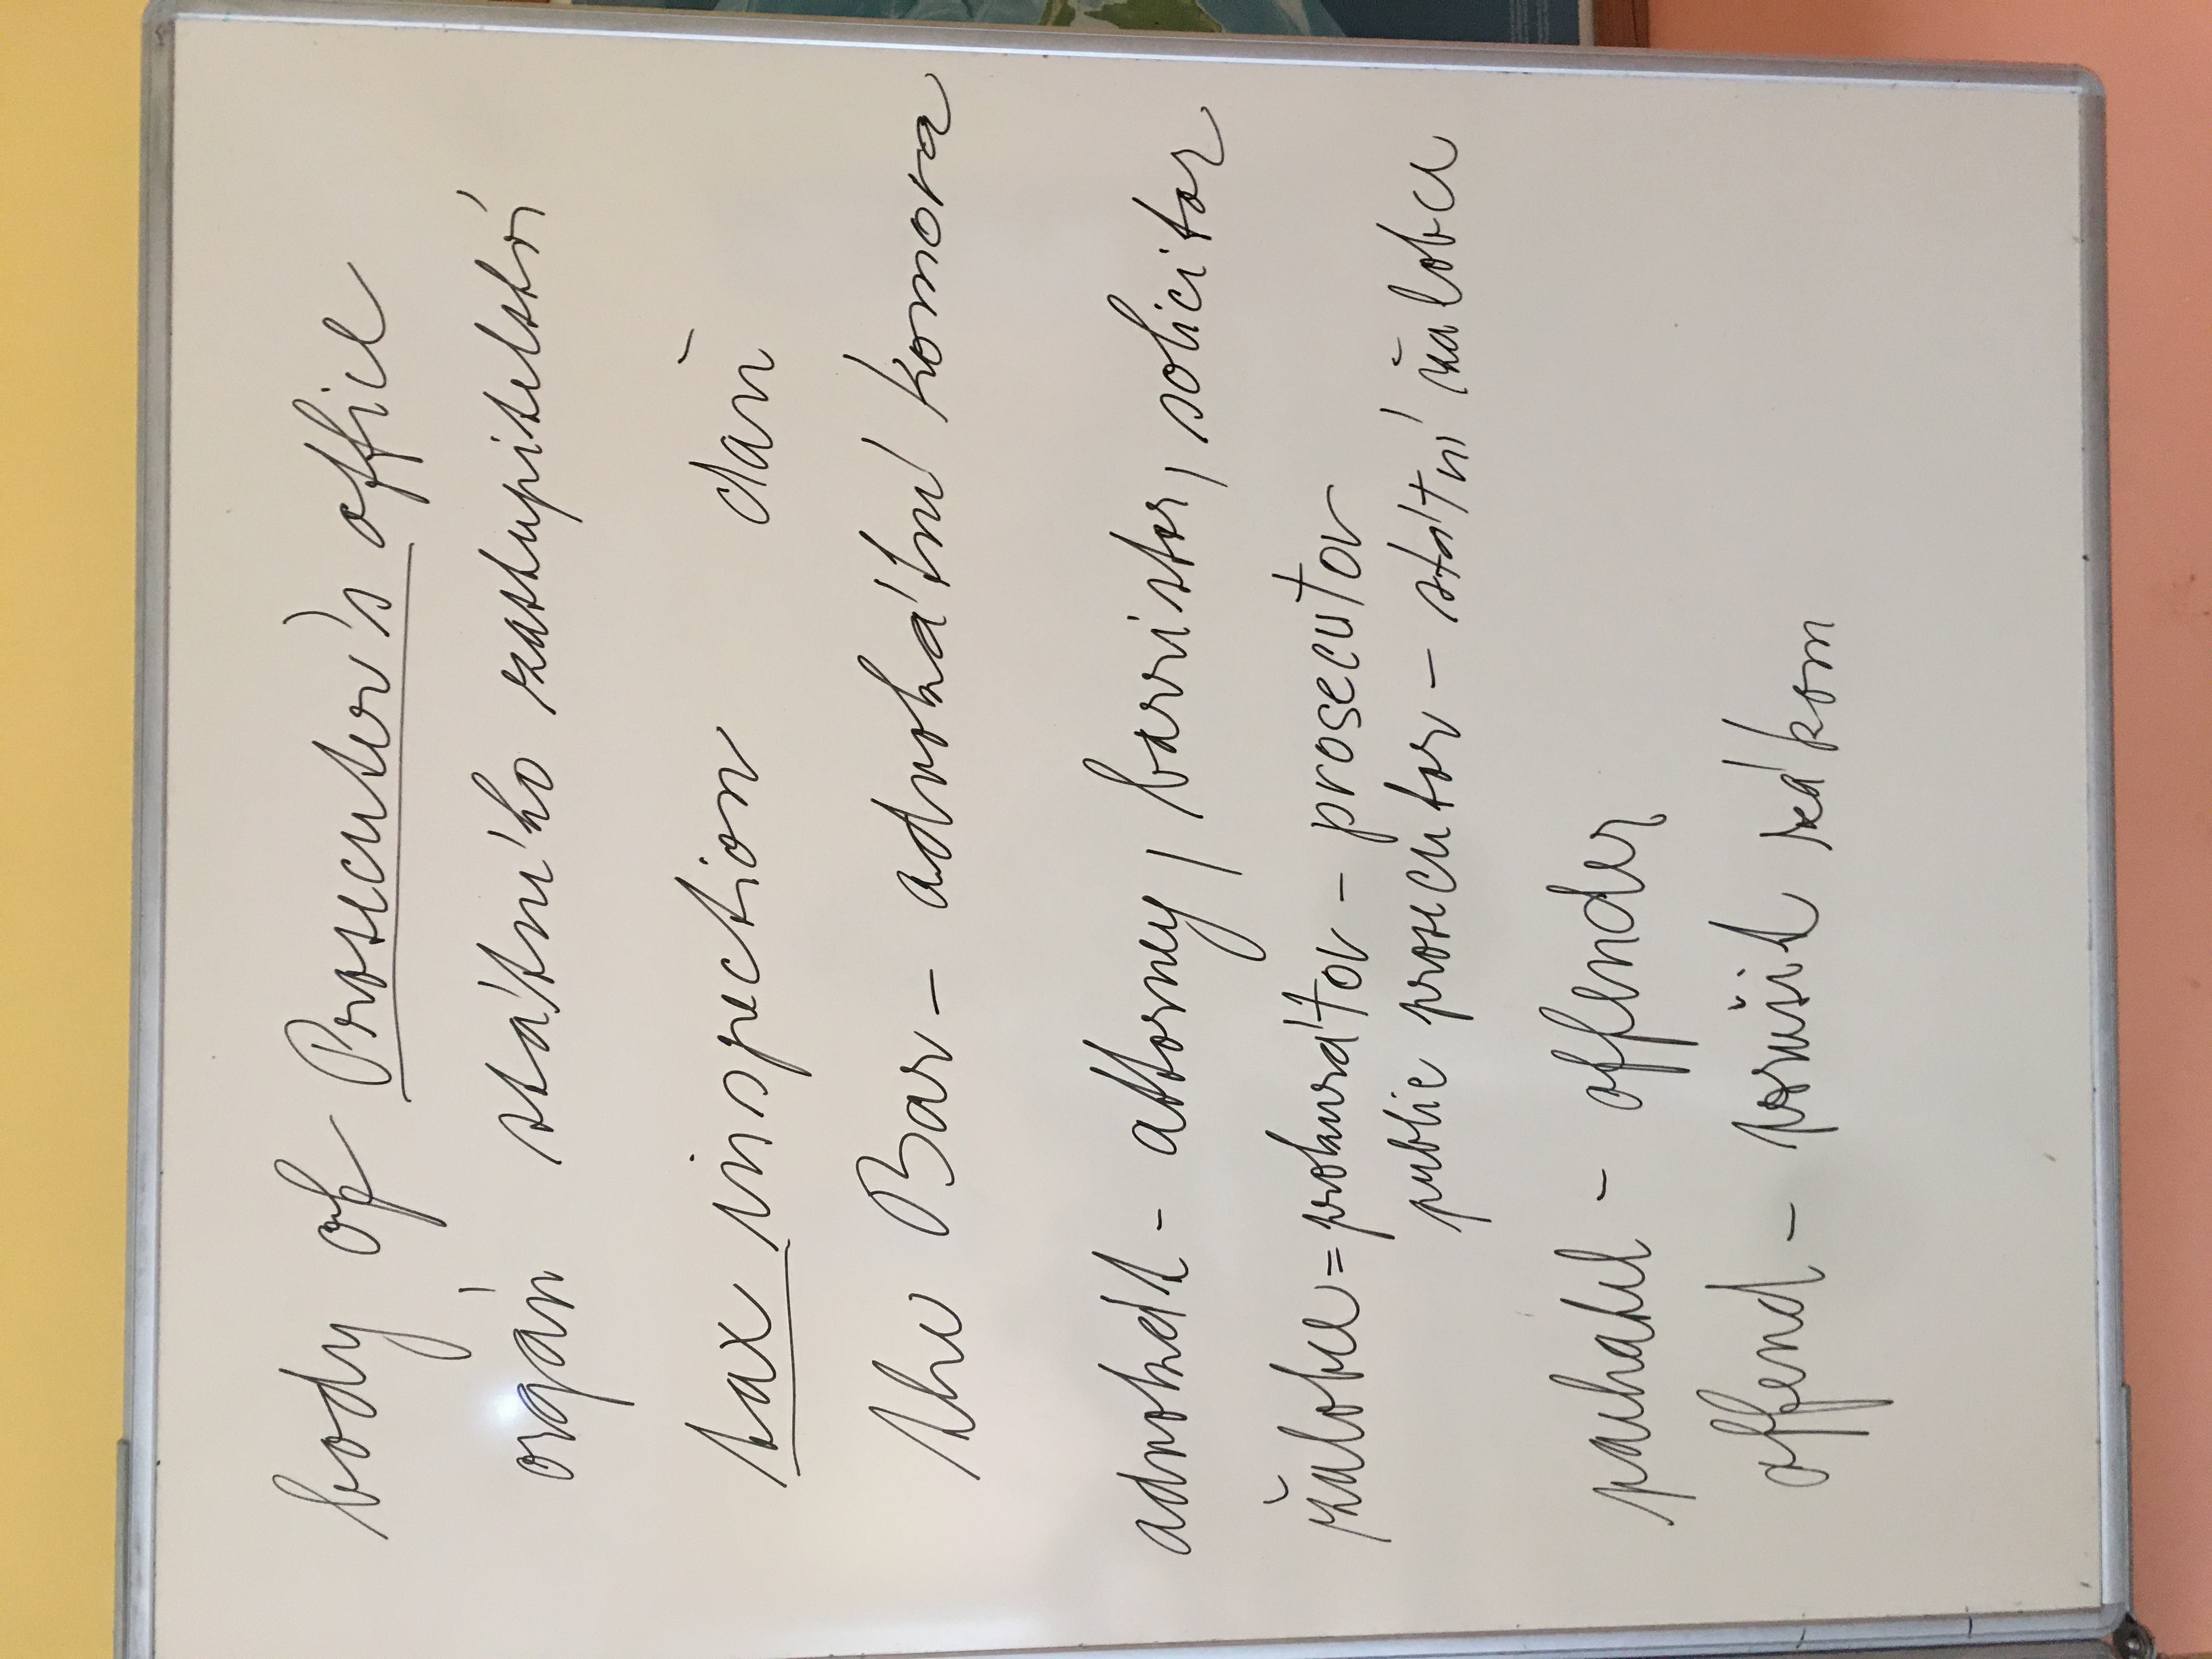 body of Prosecutor's office
orgán státního zastupitelství
tax inspection daň
the Bar - advokátní komora
advokát - attorney, barrister, solicitor
žalobce = prokurátor - prosecutor
public prosecutor - státní žalobce
pachatel - offender
offend - porušit zákon